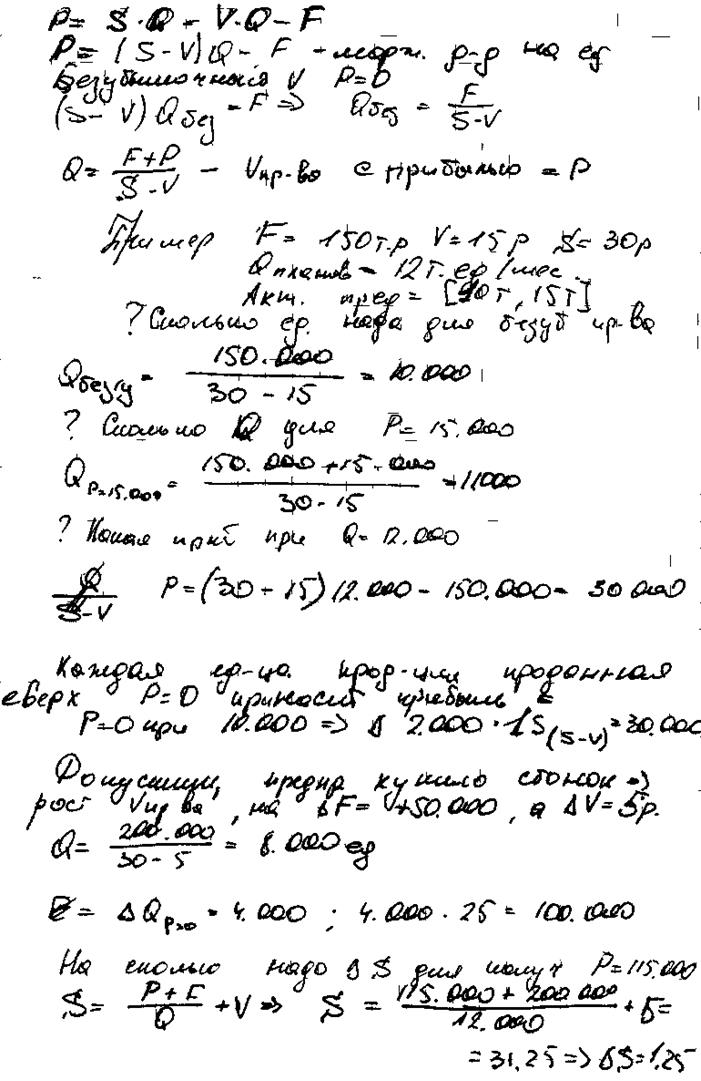 P = S·Q - V·Q - F
P = (S-V)Q - F - марж. р-р на ед
Безубыточный V P=0
(S-V) Qбез = F => Qбез = F/(S-V)
Q = (F+P)/(S-V) - Vпр-ва с прибылью = P
Пример F = 150т.р V=15р S=30р
Qпланов = 12т.ед/мес.
Акт. пред = [10т, 15т]
? Сколько ед. надо для безуб пр-ва
Qбезу = 150.000/(30-15) = 10.000
? Сколько Q для P=15.000
Q P=15.000 = (150.000+15.000)/(30-15) = 11000
? Какая при при Q=12.000
P=(30-15)12.000-150.000= 30 000
Каждая ед-ца прод-ции проданная
сверх P=0 приносит прибыль
P=0 при 10.000 => Δ 2.000·15(S-V)=30.000
Допустим, предпр купило станок =>
рост Vпр-ва, на ΔF=+50.000, а ΔV=5р.
Q = 200.000/(30-5) = 8.000 ед
= ΔQ P=0 = 4.000; 4.000·25 = 100.000
На сколько надо Δ S для получ P=115.000
S = (P+F)/Q + V => S = (115.000+200 000)/12.000 + 5 =
= 31,25 => ΔS=1,25